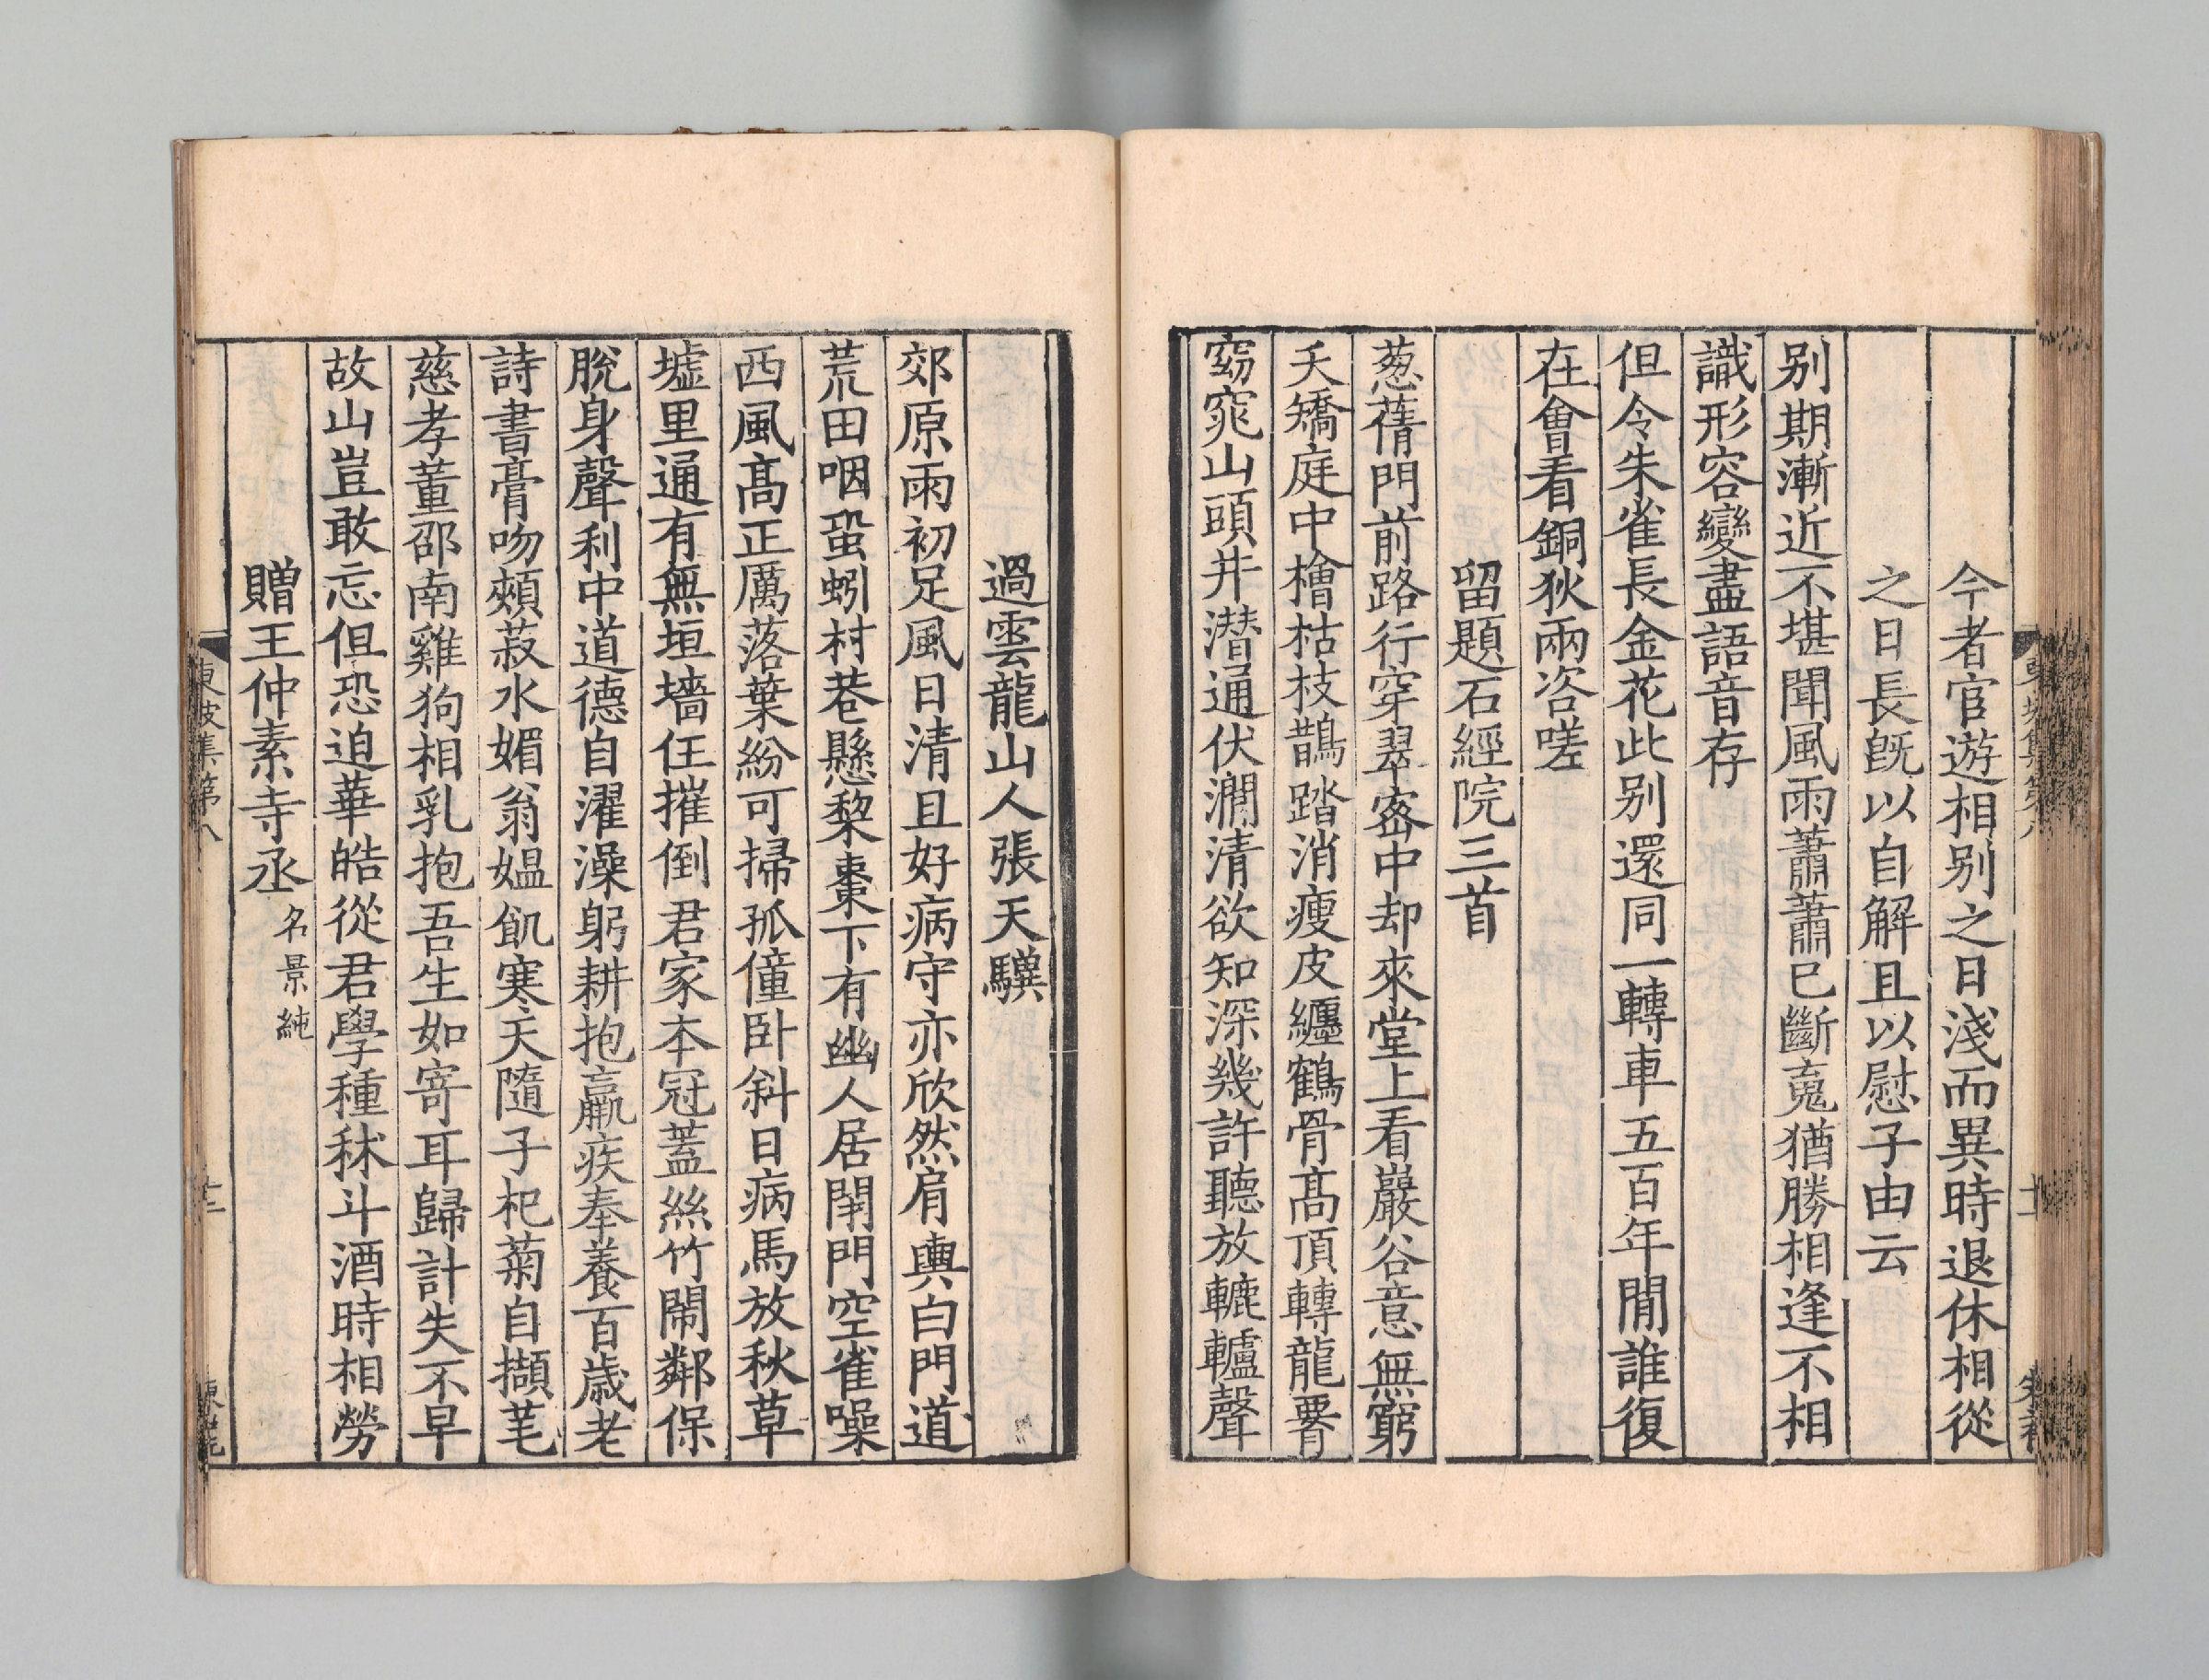 今者官遊相别之日淺而異時退休相從
之日長旣以自解且以慰子由云
别期漸近不堪聞風雨蕭蕭已斷䰟猶勝相逢不相
識形容變盡語音存
但令朱雀長金花此别還同一轉車五百年閒誰復
在㑹看銅狄兩咨嗟
留題石經院三首
葱蒨門前路行穿翠宻中却來堂上看巖谷意無窮
夭矯庭中檜枯枝鵲踏消瘦皮纏鶴骨髙頂轉龍腰
窈窕山頭井潜通伏澗清欲知深幾許聽放轆轤聲
過雲龍山人張天驥
郊原雨初足風日清且好病守亦欣然肩輿白門道
荒田咽蛩蚓村巷懸棃棗下有幽人居閉門空雀噪
西風髙正厲落葉紛可掃孤僮卧斜日病馬放秋草
墟里通有無垣墻任摧倒君家本冠蓋絲竹鬧鄰保
脫身聲利中道德自濯澡躬耕抱羸疾奉養百歳老
詩書膏吻頰菽水媚翁媪飢寒天隨子杞菊自擷芼
慈孝董邵南雞狗相乳抱吾生如寄耳歸計失不早
故山豈敢忘但恐迫華皓從君學種秫斗酒時相勞
贈王仲素寺丞名景純
東坡集第八